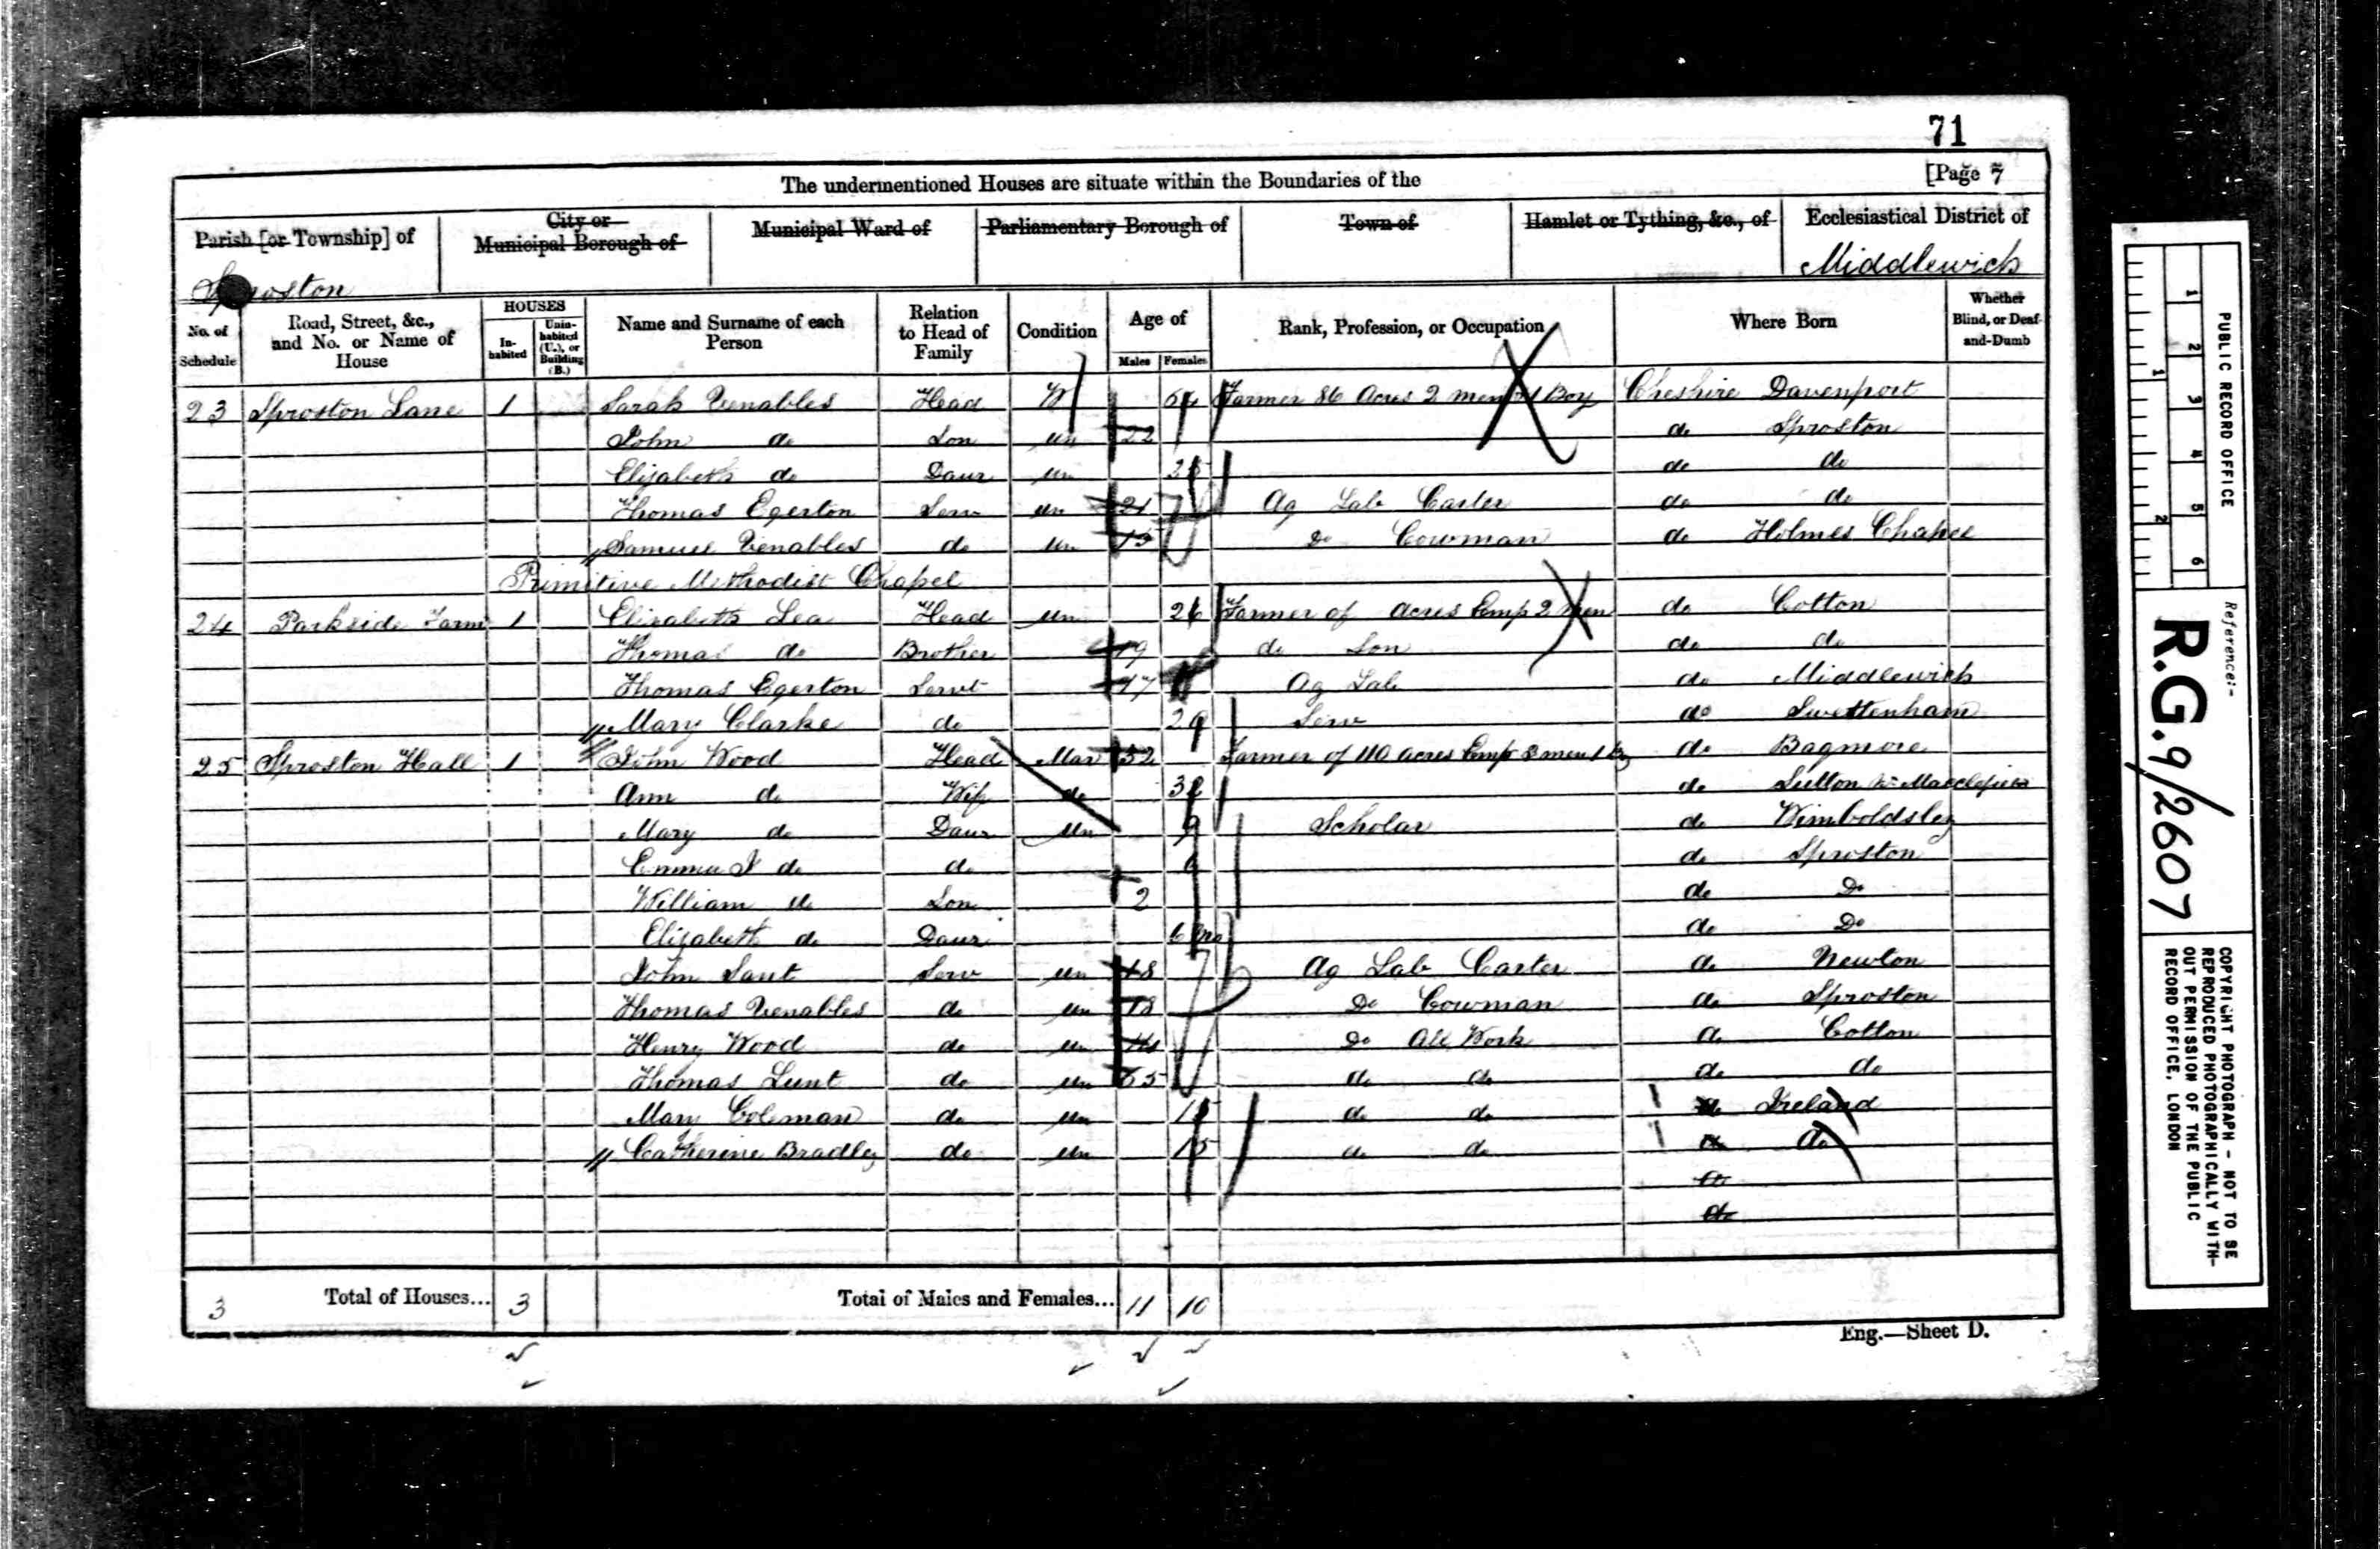 71
The undermentioned Houses are situate within the Boundaries of the [Page 7
Parish [or Township] of City or Municipal Borough of Municipal Ward of Parliamentary Borough of Town of Hamlet or Tything, &c., of Ecclesiastical District of
Sproston Middlewich
No. of Schedule Road, Street, &c., and No. or Name of House HOUSES Inhabited Uninhabited (U.), or Building (B.) Name and Surname of each Person Relation to Head of Family Condition Age of Males Females Rank, Profession, or Occupation Where Born Whether Blind, or Deaf-and-Dumb
23 Sproston Lane 1 Sarah Venables Head W Farmer 86 Acres 2 men 1 Boy Cheshire Davenport
John do Son un 22 do Sproston
Elizabeth do Daur un do do
Thomas Egerton Serv un 21 Ag Lab Carter do do
Samuel Venables do un Do Cowman do Holmes Chapel
Primitive Methodist Chapel
24 Parkside Farm 1 Elizabeth Lea Head un 26 Farmer of acres Emp 2 men do Cotton
Thomas do Brother 19 do Son do do
Thomas Egerton Servt 17 Ag Lab do Middlewich
Mary Clarke do 29 Serv do Swettenham
25 Sproston Hall 1 John Wood Head Mar Farmer of 110 acres Emp men 1 do Bagmore
Ann do Wife do do Sutton Nr Macclesfield
Mary do Daur un 9 Scholar do Wimboldsley
Emma J do do do Sproston
William do Son 2 do Do
Elizabeth do Daur 6 mo do Do
John Sant Serv un 18 Ag Lab Carter do Newton
Thomas Venables do un 18 Do Cowman do Sproston
Henry Wood do un Do All Work do Cotton
Thomas Lunt do un 65 do do do do
Mary Coleman do un do do do Ireland
Catherine Bradley do un 15 do do do do
do
do
3 Total of Houses... 3 Total of Males and Females... 11 10
Eng.—Sheet D.
1 2 3 4 5 6
1 2
PUBLIC RECORD OFFICE
Reference:-
R.G. 9/2607
COPYRIGHT PHOTOGRAPH - NOT TO BE
REPRODUCED PHOTOGRAPHICALLY WITH-
OUT PERMISSION OF THE PUBLIC
RECORD OFFICE, LONDON